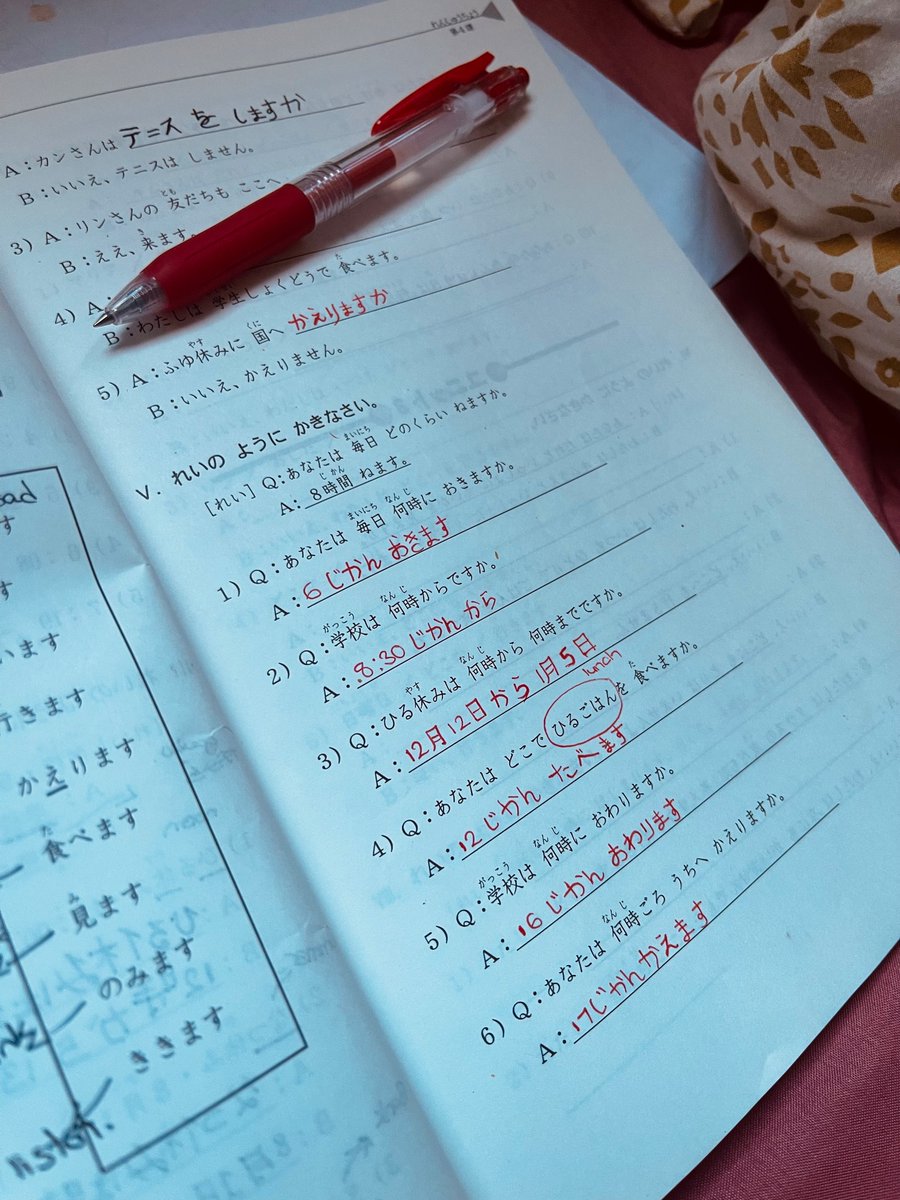 れんしゅうちょう
第4課
A：カンさんは テニス を しますか
B：いいえ、テニスは しません。
3) A：リンさんの 友だちも ここへ
とも
B：ええ、来ます。
き
4) A
B：わたしは 学生しょくどうで 食べます。
がくせい た
5) A：ふゆ休みに 国へ かえりますか
やす くに
B：いいえ、かえりません。
V. れいの ように かきなさい。
[れい] Q：あなたは 毎日 どのくらい ねますか。
まいにち
A：8時間 ねます。
じかん
1) Q：あなたは 毎日 何時に おきますか。
まいにち なんじ
A：6 じかん おきます
2) Q：学校は 何時からですか。
がっこう なんじ
A：8:30 じかん から
3) Q：ひる休みは 何時から 何時までですか。
やす なんじ
A：12月12日 から 1月5日
lunch
4) Q：あなたは どこで ひるごはんを 食べますか。
た
A：12 じかん たべます
5) Q：学校は 何時に おわりますか。
がっこう なんじ
A：16 じかん おわります
6) Q：あなたは 何時ごろ うちへ かえりますか。
なんじ
A：17じかんかえます
います
行きます
かえります
食べます
た
見ます
み
のみます
ききます
listen.